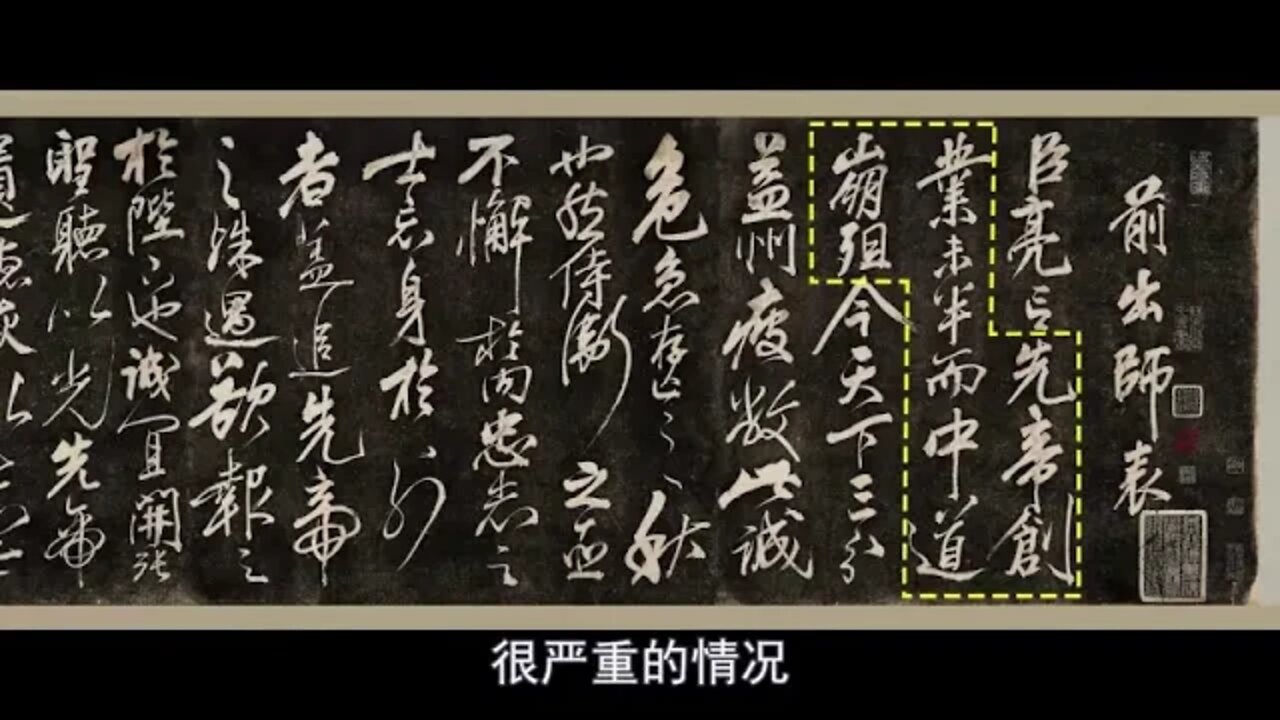 前出師表
臣亮言先帝創
業未半而中道
崩殂今天下三分
益州疲敝此誠
危急存亡之秋
也然侍衛之臣
不懈於内忠志之
士忘身於外
者蓋追先帝
之殊遇欲報之
於陛下也誠宜開張
聖聽以光先帝
很严重的情况